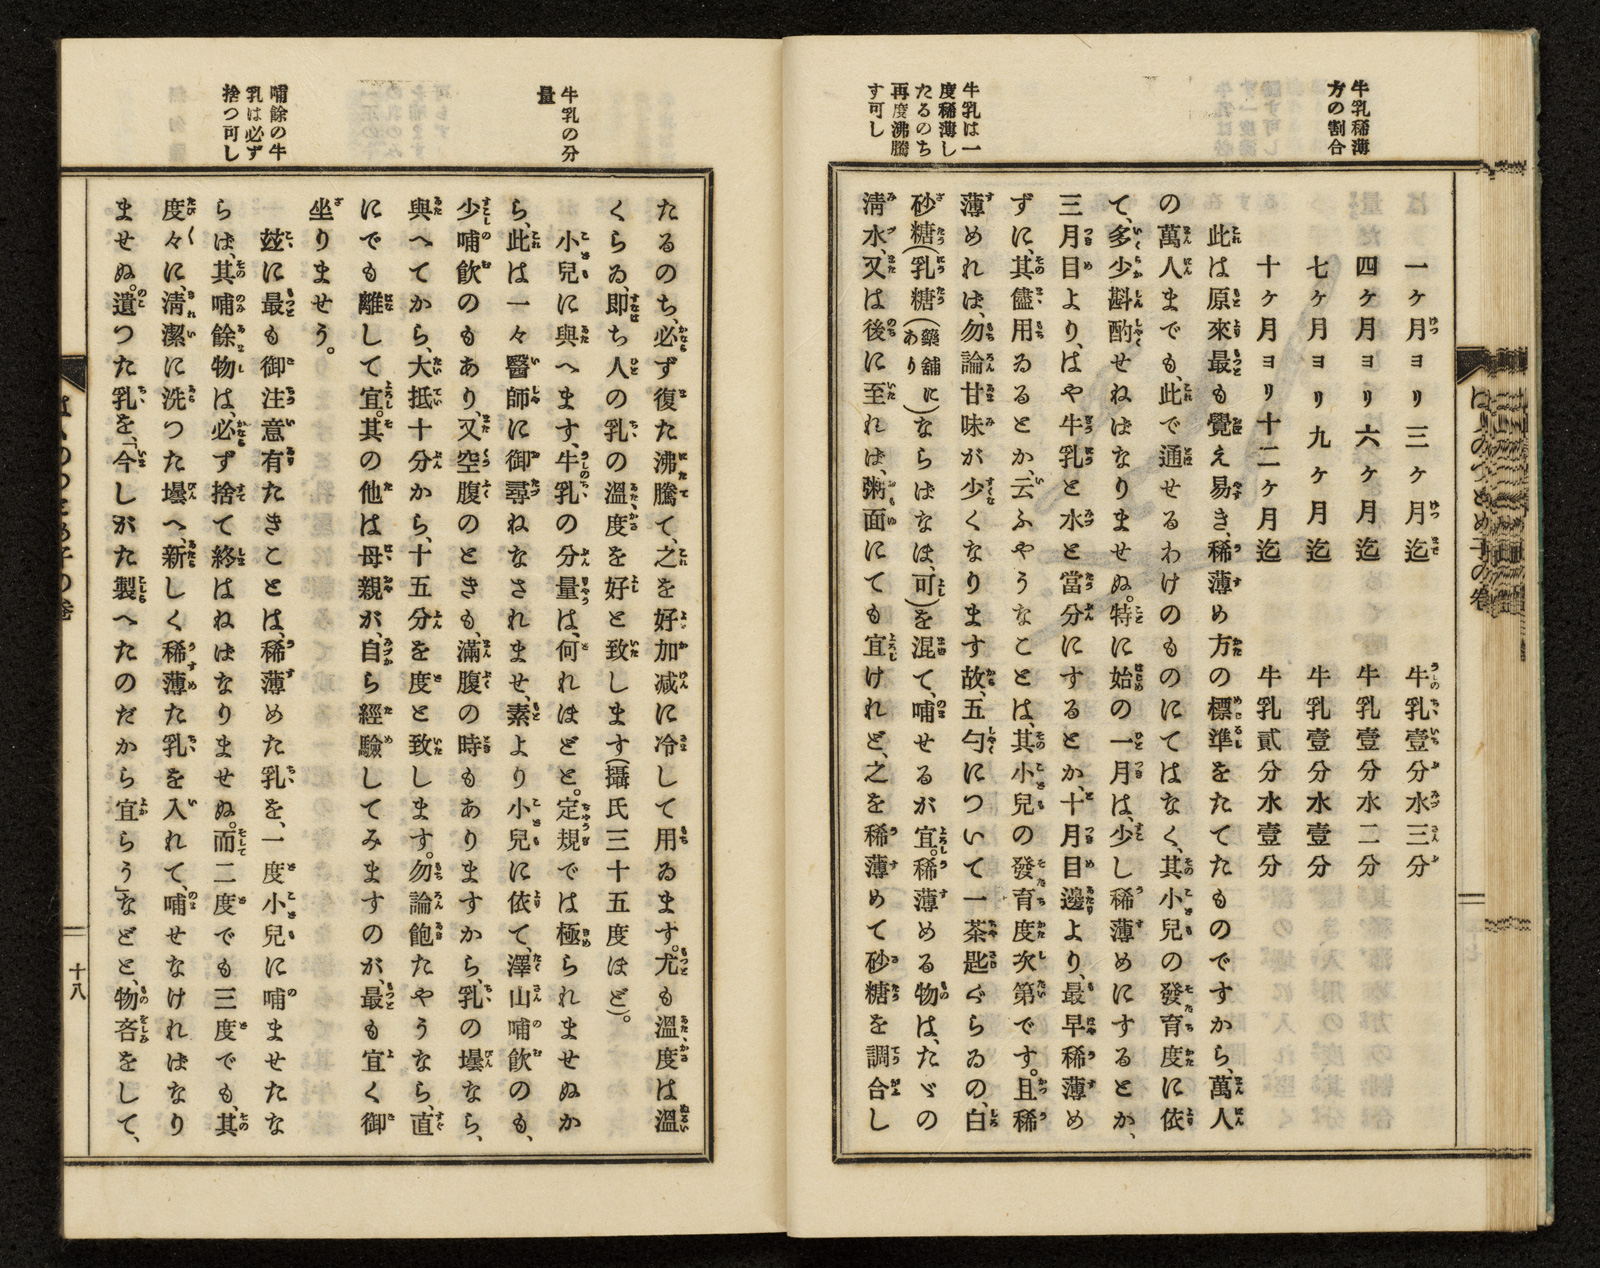 牛乳稀薄
方の割合
牛乳は一
度稀薄し
たるのち
再度沸騰
す可し
一ヶ月ヨリ三ヶ月迄 牛乳壹分水三分
四ヶ月ヨリ六ヶ月迄 牛乳壹分水二分
七ヶ月ヨリ九ヶ月迄 牛乳壹分水壹分
十ヶ月ヨリ十二ヶ月迄 牛乳貳分水壹分
此は原來最も覺え易き、稀薄め方の標準をたてたものですから、萬人
の萬人までも、此で通せるわけのものにてはなく、其小兒の發育度に依
て、多少斟酌せねばなりませぬ。特に始の一月は、少し稀薄めにするとか、
三月目より、はや牛乳と水と當分にするとか、十月目邊より、最早稀薄め
ずに、其儘用ゐるとか、云ふやうなことは、其小兒の發育度次第です。且稀
薄めれは、勿論甘味が少くなります故、五勺について一茶匙ぐらゐの、白
砂糖(乳糖(藥舖にあり)ならばなほ、可)を混て、哺せるが宜。稀薄める物は、たゞの
淸水、又は後に至れは、粥面にても宜けれど、之を稀薄めて砂糖を調合し
はゝのつとめ子の卷
牛乳の分
量
哺餘の牛
乳は必ず
捨つ可し
たるのち、必ず復た沸騰て、之を好加減に冷して用ゐます。尤も溫度は溫
くらゐ、即ち人の乳の溫度を好と致します(攝氏三十五度ほど)。
小兒に與へます、牛乳の分量は、何れほどと。定規では極られませぬか
ら、此は一々醫師に御尋ねなされませ、素より小兒に依て、澤山哺飮のも、
少哺飮のもあり、又空腹のときも、滿腹の時もありますから、乳の壜なら、
與へてから、大抵十分から、十五分を度と致します。勿論飽たやうなら、直
にでも離して宜。其の他は母親が、自ら經驗してみますのが、最も宜く御
坐りませう。
玆に最も御注意有たきことは、稀薄めた乳を、一度小兒に哺ませたな
らは、其哺餘物は、必ず捨て終はねはなりませぬ。而二度でも三度でも、其
度々に、淸潔に洗つた壜へ、新しく稀薄た乳を入れて、哺せなければなり
ませぬ。遺つた乳を、「今しがた製へたのだから宜らう」などと、物吝をして、
はゝのつとめ子の卷
十八